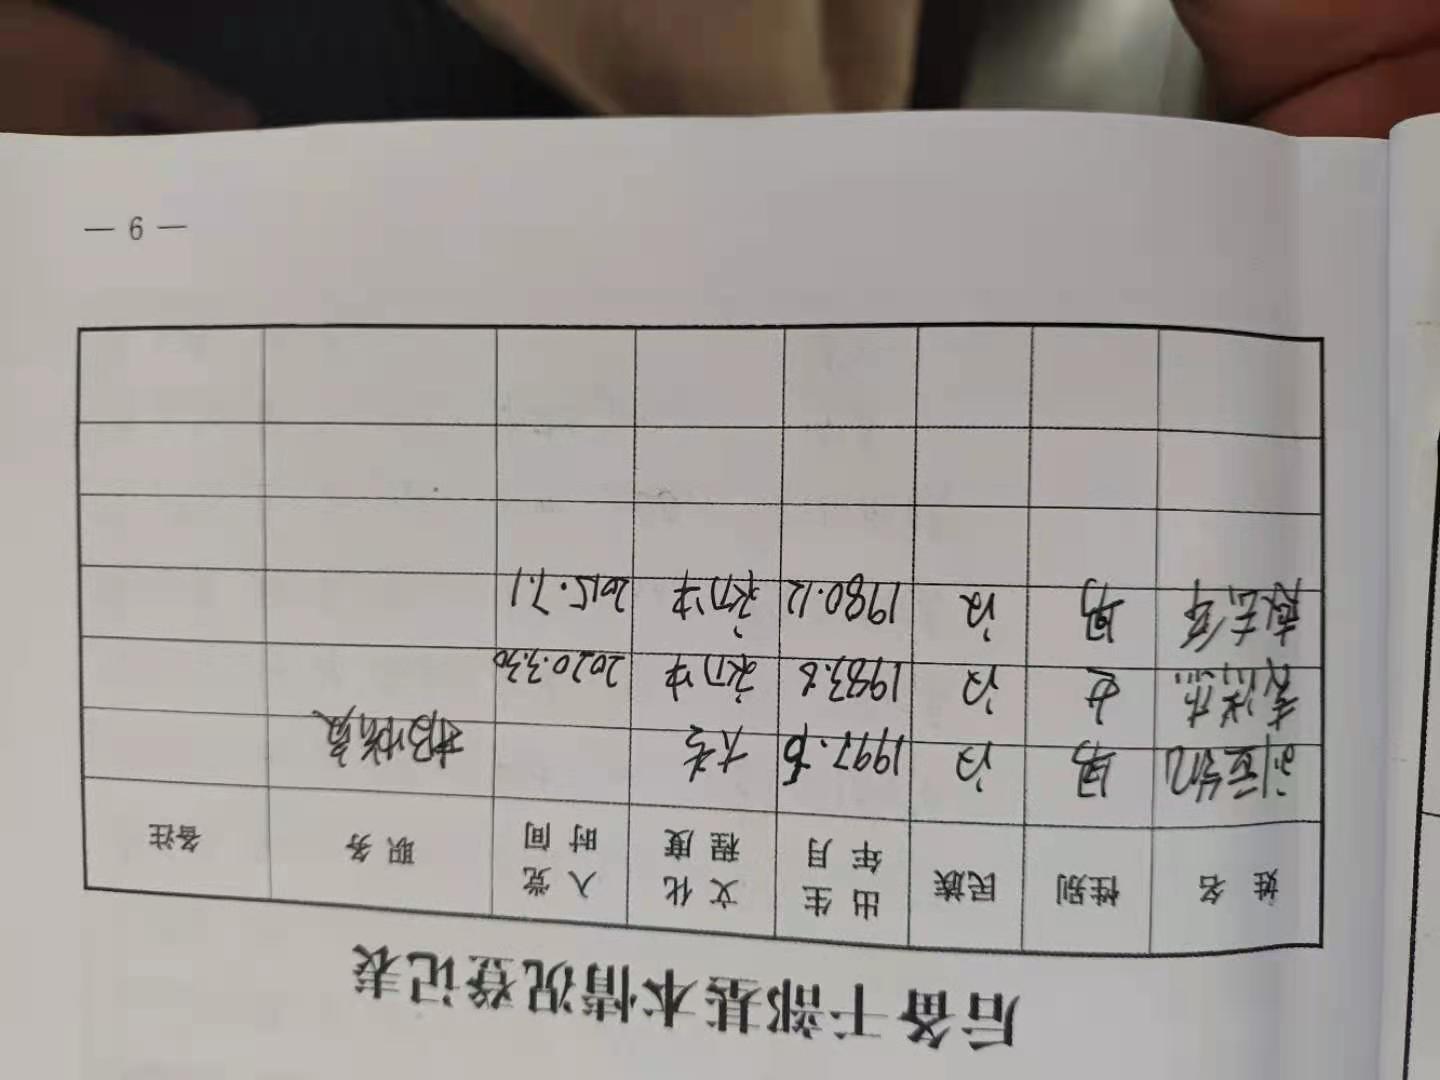 后备干部基本情况登记表
姓名 性别 民族 出生年月 文化程度 入党时间 职务 备注
男 汉 1997.6 大专
女 汉 1983.8 初中 2020.3.30
男 汉 1980.12 初中 2015.7.1
— 6 —